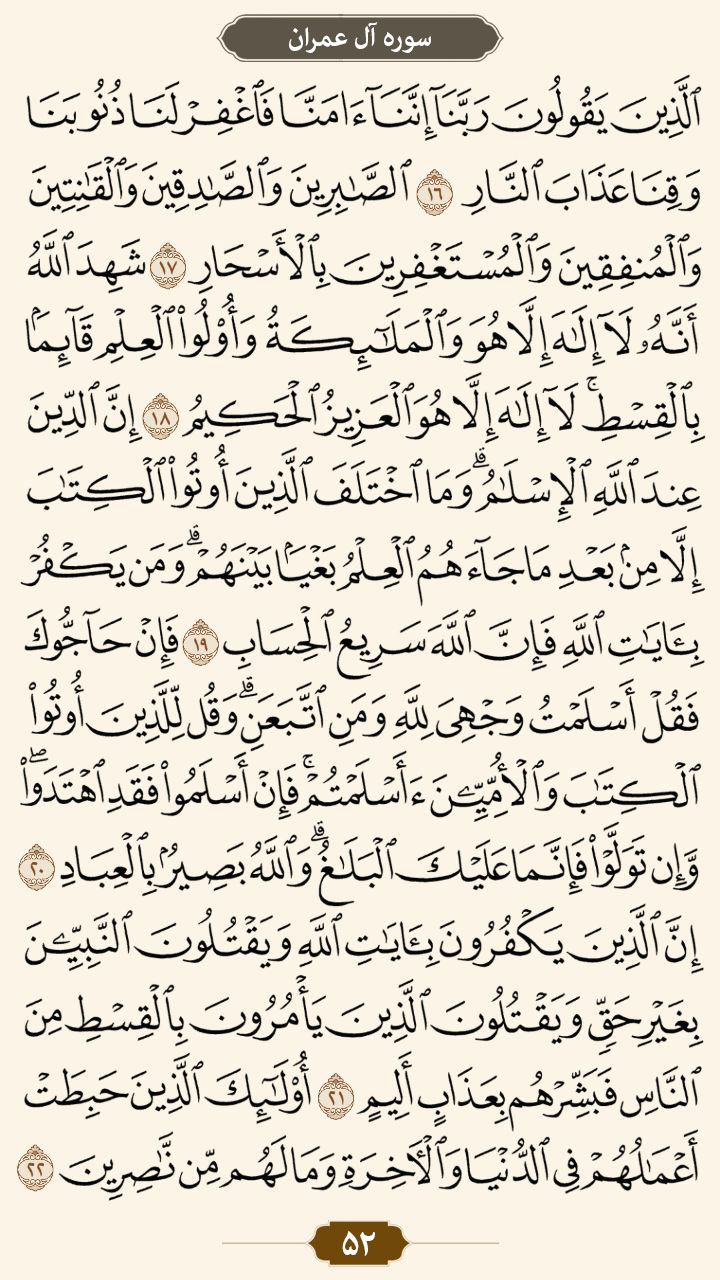 سوره آل عمران
ٱلَّذِينَ يَقُولُونَ رَبَّنَآ إِنَّنَآ ءَامَنَّا فَٱغْفِرْ لَنَا ذُنُوبَنَا
وَقِنَا عَذَابَ ٱلنَّارِ ١٦ ٱلصَّٰبِرِينَ وَٱلصَّٰدِقِينَ وَٱلْقَٰنِتِينَ
وَٱلْمُنفِقِينَ وَٱلْمُسْتَغْفِرِينَ بِٱلْأَسْحَارِ ١٧ شَهِدَ ٱللَّهُ
أَنَّهُۥ لَآ إِلَٰهَ إِلَّا هُوَ وَٱلْمَلَٰٓئِكَةُ وَأُو۟لُوا۟ ٱلْعِلْمِ قَآئِمَۢا
بِٱلْقِسْطِۚ لَآ إِلَٰهَ إِلَّا هُوَ ٱلْعَزِيزُ ٱلْحَكِيمُ ١٨ إِنَّ ٱلدِّينَ
عِندَ ٱللَّهِ ٱلْإِسْلَٰمُۗ وَمَا ٱخْتَلَفَ ٱلَّذِينَ أُوتُوا۟ ٱلْكِتَٰبَ
إِلَّا مِنۢ بَعْدِ مَا جَآءَهُمُ ٱلْعِلْمُ بَغْيَۢا بَيْنَهُمْۗ وَمَن يَكْفُرْ
بِـَٔايَٰتِ ٱللَّهِ فَإِنَّ ٱللَّهَ سَرِيعُ ٱلْحِسَابِ ١٩ فَإِنْ حَآجُّوكَ
فَقُلْ أَسْلَمْتُ وَجْهِىَ لِلَّهِ وَمَنِ ٱتَّبَعَنِۗ وَقُل لِّلَّذِينَ أُوتُوا۟
ٱلْكِتَٰبَ وَٱلْأُمِّيِّـۧنَ ءَأَسْلَمْتُمْۚ فَإِنْ أَسْلَمُوا۟ فَقَدِ ٱهْتَدَوا۟ۖ
وَّإِن تَوَلَّوْا۟ فَإِنَّمَا عَلَيْكَ ٱلْبَلَٰغُۗ وَٱللَّهُ بَصِيرُۢ بِٱلْعِبَادِ ٢٠
إِنَّ ٱلَّذِينَ يَكْفُرُونَ بِـَٔايَٰتِ ٱللَّهِ وَيَقْتُلُونَ ٱلنَّبِيِّـۧنَ
بِغَيْرِ حَقٍّ وَيَقْتُلُونَ ٱلَّذِينَ يَأْمُرُونَ بِٱلْقِسْطِ مِنَ
ٱلنَّاسِ فَبَشِّرْهُم بِعَذَابٍ أَلِيمٍ ٢١ أُو۟لَٰٓئِكَ ٱلَّذِينَ حَبِطَتْ
أَعْمَٰلُهُمْ فِى ٱلدُّنْيَا وَٱلْأٓخِرَةِ وَمَا لَهُم مِّن نَّٰصِرِينَ ٢٢
۵۲